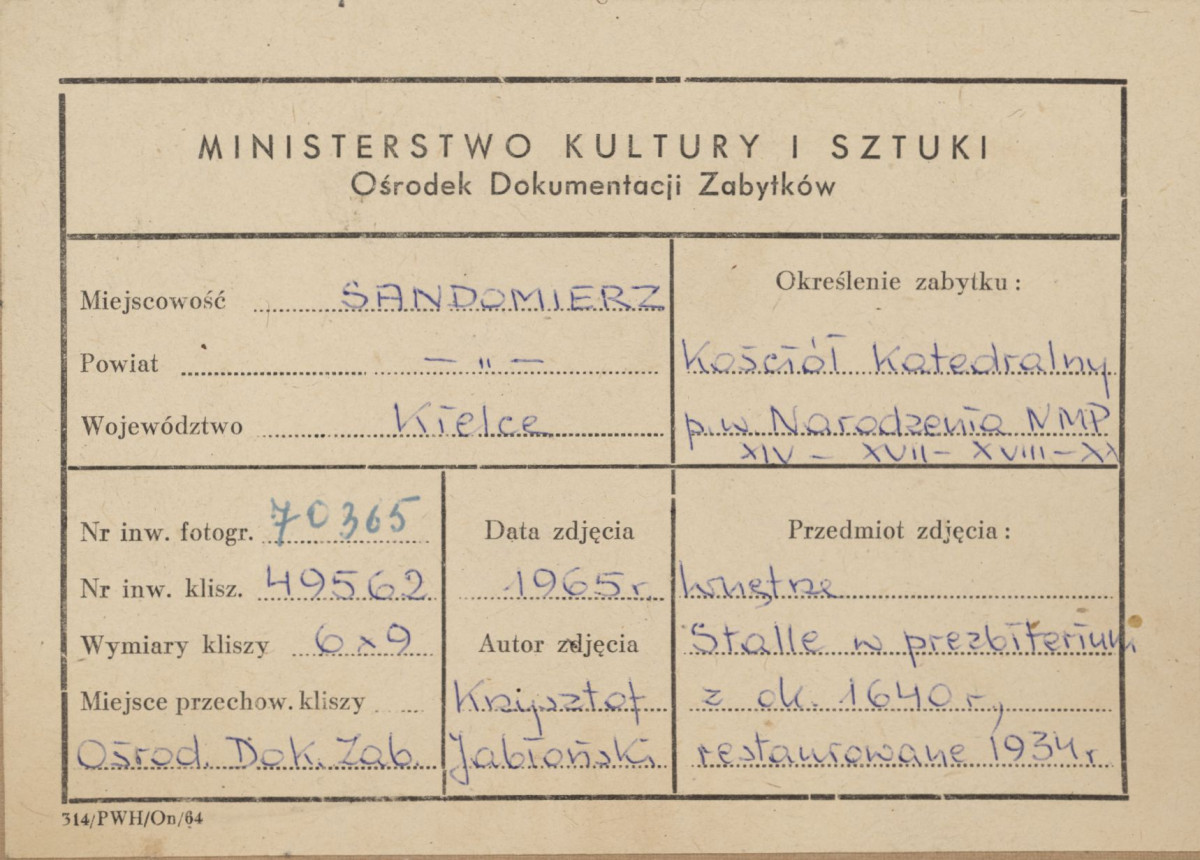 MINISTERSTWO KULTURY I SZTUKI
Ośrodek Dokumentacji Zabytków
Miejscowość SANDOMIERZ
Powiat — „ —
Województwo Kielce
Określenie zabytku:
Kościół Katedralny
p.w. Narodzenia NMP
XIV - XVII - XVIII - XX
Nr inw. fotogr. 70365
Nr inw. klisz. 49562
Wymiary kliszy 6x9
Miejsce przechow. kliszy
Ośrod. Dok. Zab.
Data zdjęcia
1965 r.
Autor zdjęcia
Krzysztof
Jabłoński
Przedmiot zdjęcia:
Wnętrze
Stalle w prezbiterium
z ok. 1640 r,
restaurowane 1934 r
314/PWH/On/64